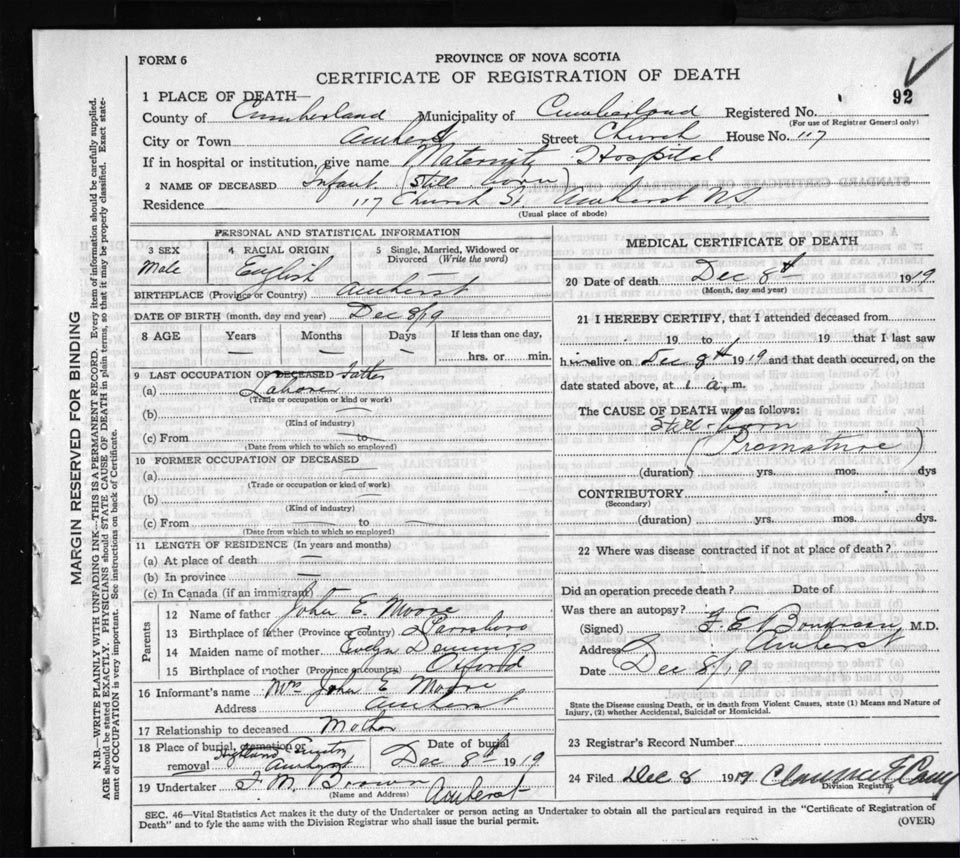 FORM 6
PROVINCE OF NOVA SCOTIA
CERTIFICATE OF REGISTRATION OF DEATH
92
1 PLACE OF DEATH—
County of Cumberland Municipality of Cumberland Registered No.
(For use of Registrar General only)
City or Town Amherst Street Church House No. 117
If in hospital or institution, give name Maternity Hospital
2 NAME OF DECEASED Infant (Still born)
Residence 117 Church St Amherst N.S.
(Usual place of abode)
PERSONAL AND STATISTICAL INFORMATION
3 SEX 4 RACIAL ORIGIN 5 Single, Married, Widowed or
Divorced (Write the word)
Male English —
BIRTHPLACE (Province or Country) Amherst
DATE OF BIRTH (month, day and year) Dec 8/19
8 AGE Years Months Days If less than one day,
— — — hrs. or min.
9 LAST OCCUPATION OF DECEASED Father
(a) Laborer
(Trade or occupation or kind or work)
(b)
(Kind of industry)
(c) From to
(Date from which to which so employed)
10 FORMER OCCUPATION OF DECEASED
(a) —
(Trade or occupation or kind of work)
(b) —
(Kind of industry)
(c) From — to —
(Date from which to which so employed)
11 LENGTH OF RESIDENCE (In years and months)
(a) At place of death —
(b) In province —
(c) In Canada (if an immigrant)
Parents
12 Name of father John E. Moore
13 Birthplace of father (Province or country) Parrsboro
14 Maiden name of mother Evelyn
15 Birthplace of mother (Province or country) Oxford
16 Informant's name Mrs John E Moore
Address Amherst
17 Relationship to deceased Mother
18 Place of burial, cremation or Date of burial
removal Highland Cemetery Amherst Dec 8th 1919
19 Undertaker F. M. Brown Amherst
(Name and Address)
MEDICAL CERTIFICATE OF DEATH
20 Date of death Dec 8th 1919
(Month, day and year)
21 I HEREBY CERTIFY, that I attended deceased from
19 to 19 that I last saw
h alive on Dec 8th 1919 and that death occurred, on the
date stated above, at 1 a.m.
The CAUSE OF DEATH was as follows:
Still-born
(Premature)
(duration) yrs. mos. dys
CONTRIBUTORY
(Secondary)
(duration) yrs. mos. dys.
22 Where was disease contracted if not at place of death?
Did an operation precede death? Date of
Was there an autopsy?
(Signed) F. E. M.D.
Address Amherst
Date Dec 8/19
State the Disease causing Death, or in death from Violent Causes, state (1) Means and Nature of
Injury, (2) whether Accidental, Suicidal or Homicidal.
23 Registrar's Record Number
24 Filed Dec 8 1919 Clarence
Division Registrar
SEC. 46—Vital Statistics Act makes it the duty of the Undertaker or person acting as Undertaker to obtain all the particulars required in the "Certificate of Registration of
Death" and to fyle the same with the Division Registrar who shall issue the burial permit.
(OVER)
MARGIN RESERVED FOR BINDING
N.B.—WRITE PLAINLY WITH UNFADING INK—THIS IS A PERMANENT RECORD. Every item of information should be carefully supplied.
AGE should be stated EXACTLY. PHYSICIANS should STATE CAUSE OF DEATH in plain terms, so that it may be properly classified. Exact state-
ment of OCCUPATION is very important. See instructions on back of Certificate.